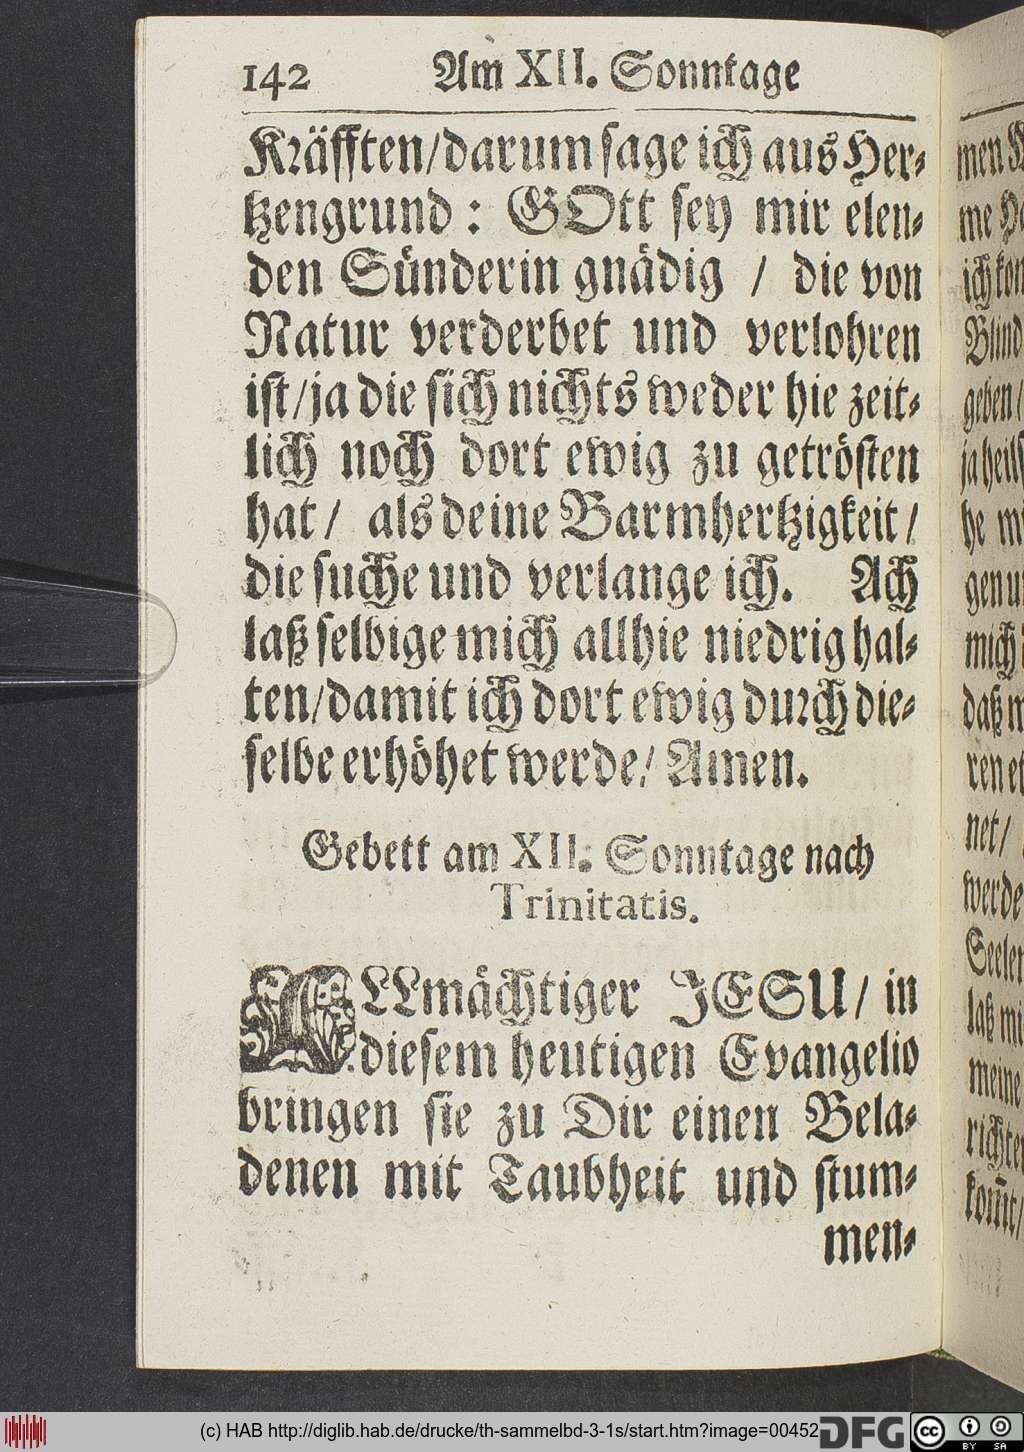 142 Am XII. Sonntage
Kräfften/darum sage ich aus Her-
tzengrund : GOtt sey mir elen-
den Sünderin gnädig / die von
Natur verderbet und verlohren
ist/ja die sich nichts weder hie zeit-
lich noch dort ewig zu getrösten
hat/ als deine Barmhertzigkeit /
die suche und verlange ich. Ach
laß selbige mich allhie niedrig hal-
ten/damit ich dort ewig durch die-
selbe erhöhet werde/ Amen.
Gebett am XII. Sonntage nach
Trinitatis.
ALLmächtiger JESU/ in
diesem heutigen Evangelio
bringen sie zu Dir einen Bela-
denen mit Taubheit und stum-
men-
men
me
ich
Blind
geben/
ja
he
gen
mich
daß
ren
net/
werde
Seelen
laß mi
meine
richten
kom̃t/
(c) HAB http://diglib.hab.de/drucke/th-sammelbd-3-1s/start.htm?image=00452
DFG
cc BY SA